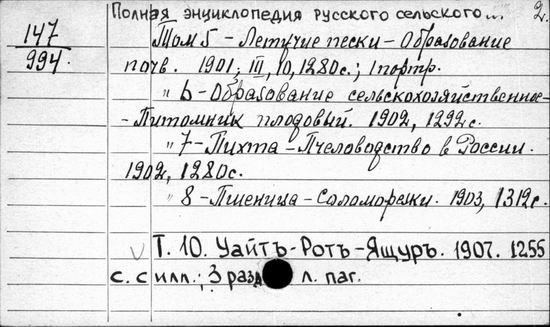 Полная энциклопедия русского сельского... 2.
147
994.
Том 5 - Летучие пески - Образование
почв. 1901; III, 10, 1280с.; 1 портр.
" 6 - Образование сельскохозяйственное -
- Питомник плодовый. 1902, 1292с.
" 7 - Пихта - Пчеловодство в России.
1902, 1280с.
" 8 - Пшеница - Соломорезки. 1903, 1312с.
V Т. 10. Уайтъ-Ротъ-Ящуръ. 1907. 1255
с. с илл.; 3 разд л. паг.